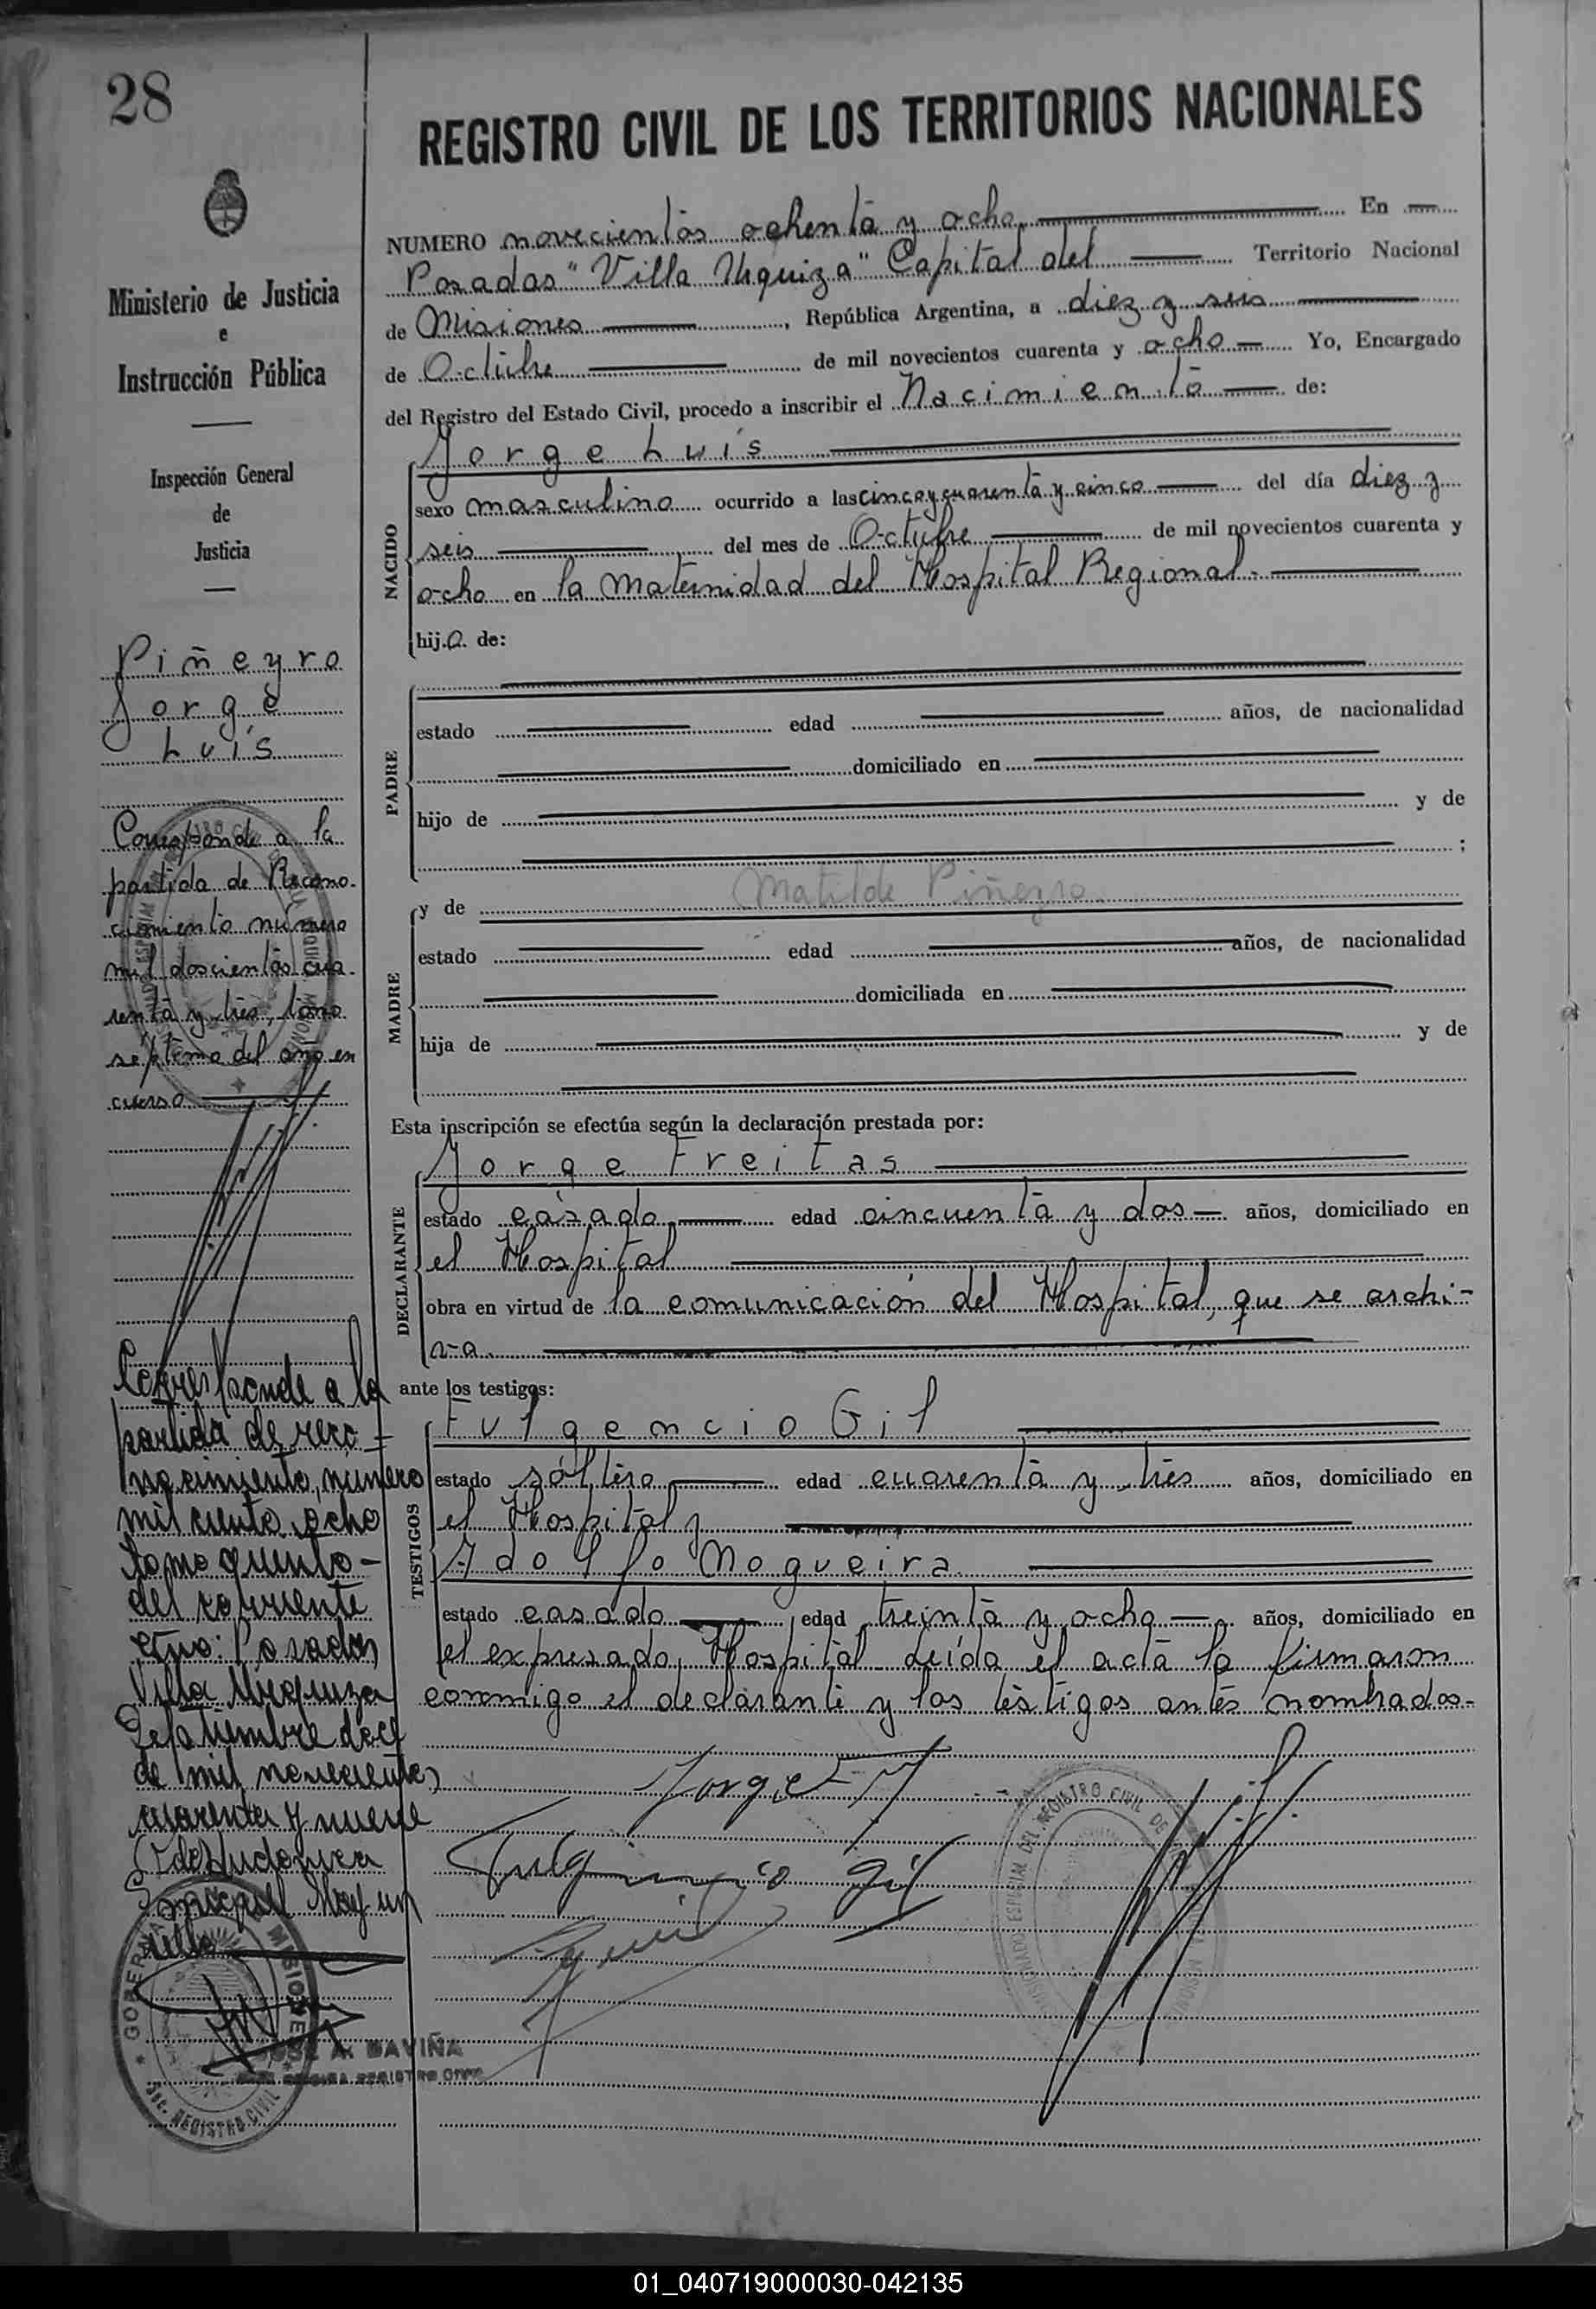 28
REGISTRO CIVIL DE LOS TERRITORIOS NACIONALES
Ministerio de Justicia
e
Instrucción Pública
Inspección General
de
Justicia
Piñeyro
Jorge
Luís
Corresponde a la
partida de Recono-
cimiento número
mil doscientos cua-
renta y tres, tomo
séptimo del año en
curso
Corresponde a la
partida de reco-
nocimiento, número
mil ciento ocho
tomo quinto-
del corriente
año: Posadas
Villa Urquiza
Septiembre doce
de mil novecientos
cuarenta y nueve
GOBER MISIONES
SEC. REGISTRO CIVIL
A. DAVIÑA
REGISTRO CIVIL
NUMERO novecientos ochenta y ocho En
Posadas "Villa Urquiza" Capital del Territorio Nacional
de Misiones, República Argentina, a diez y seis
de Octubre de mil novecientos cuarenta y ocho Yo, Encargado
del Registro del Estado Civil, procedo a inscribir el Nacimiento de:
NACIDO
Jorge Luís
sexo masculino ocurrido a las cinco y cuarenta y cinco del día diez y
seis del mes de Octubre de mil novecientos cuarenta y
ocho en la Maternidad del Hospital Regional.
hijo de:
PADRE
estado edad años, de nacionalidad
domiciliado en
hijo de y de
;
MADRE
y de Matilde Piñeyro
estado edad años, de nacionalidad
domiciliada en
hija de y de
Esta inscripción se efectúa según la declaración prestada por:
DECLARANTE
Jorge Freitas
estado casado edad cincuenta y dos años, domiciliado en
el Hospital
obra en virtud de la comunicación del Hospital, que se archi-
va.
ante los testigos:
TESTIGOS
Fulgencio Gil
estado soltero edad cuarenta y tres años, domiciliado en
el Hospital y
Adolfo Nogueira
estado casado edad treinta y ocho años, domiciliado en
el expresado Hospital. Leída el acta la firmaron
conmigo el declarante y los testigos antes nombrados.
Jorge F
Fulgencio Gil
REGISTRO CIVIL DE
01_040719000030-042135